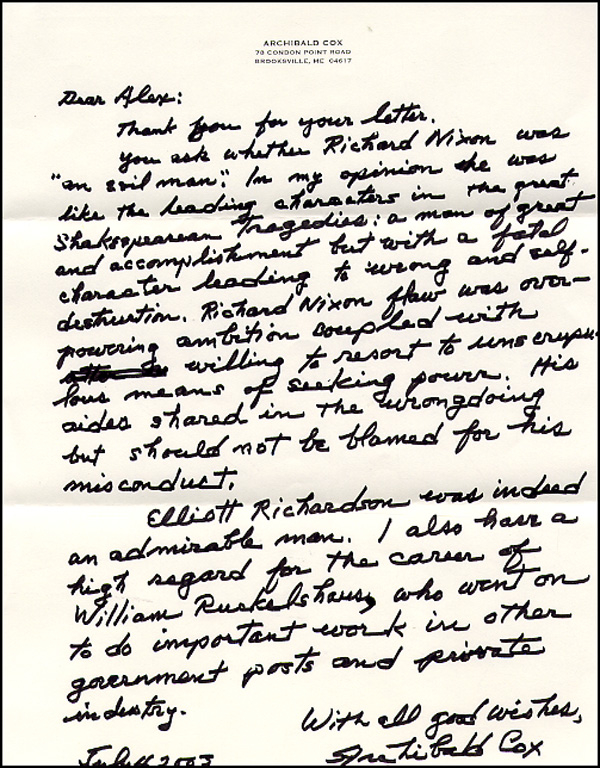 ARCHIBALD COX
78 CONDON POINT ROAD
BROOKSVILLE, ME 04617
Dear Alex:
Thank you for your letter.
You ask whether Richard Nixon was
"an evil man". In my opinion he was
like the leading characters in the great
Shakespearean tragedies: a man of great
and accomplishment but with a fatal
character leading to wrong and self-
destruction. Richard Nixon flaw was over-
powering ambition coupled with
willing to resort to unscrupu
lous means of seeking power. His
aides shared in the wrongdoing
but should not be blamed for his
misconduct.
Elliott Richardson was indeed
an admirable man. I also have a
high regard for the career of
William Ruckelshaus, who went on
to do important work in other
government posts and private
industry.
With all good wishes,
Archibald Cox
July 2003